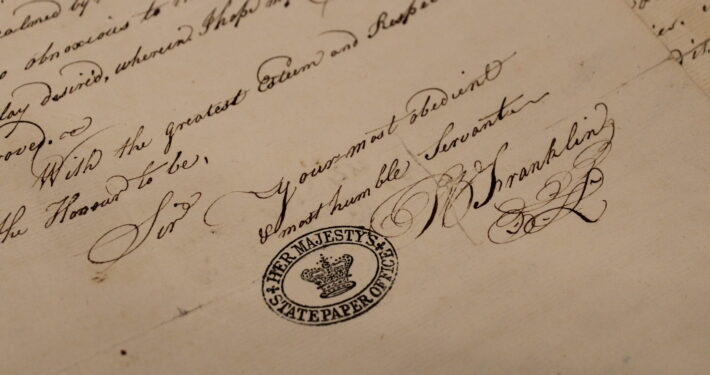 obnoxious to
lay desired, wherein I hope
With the greatest Esteem and Respec
the Honour to be,
Sir,
Your most obedient
& most humble Servant
Wm Franklin
HER MAJESTY'S
STATE PAPER OFFICE